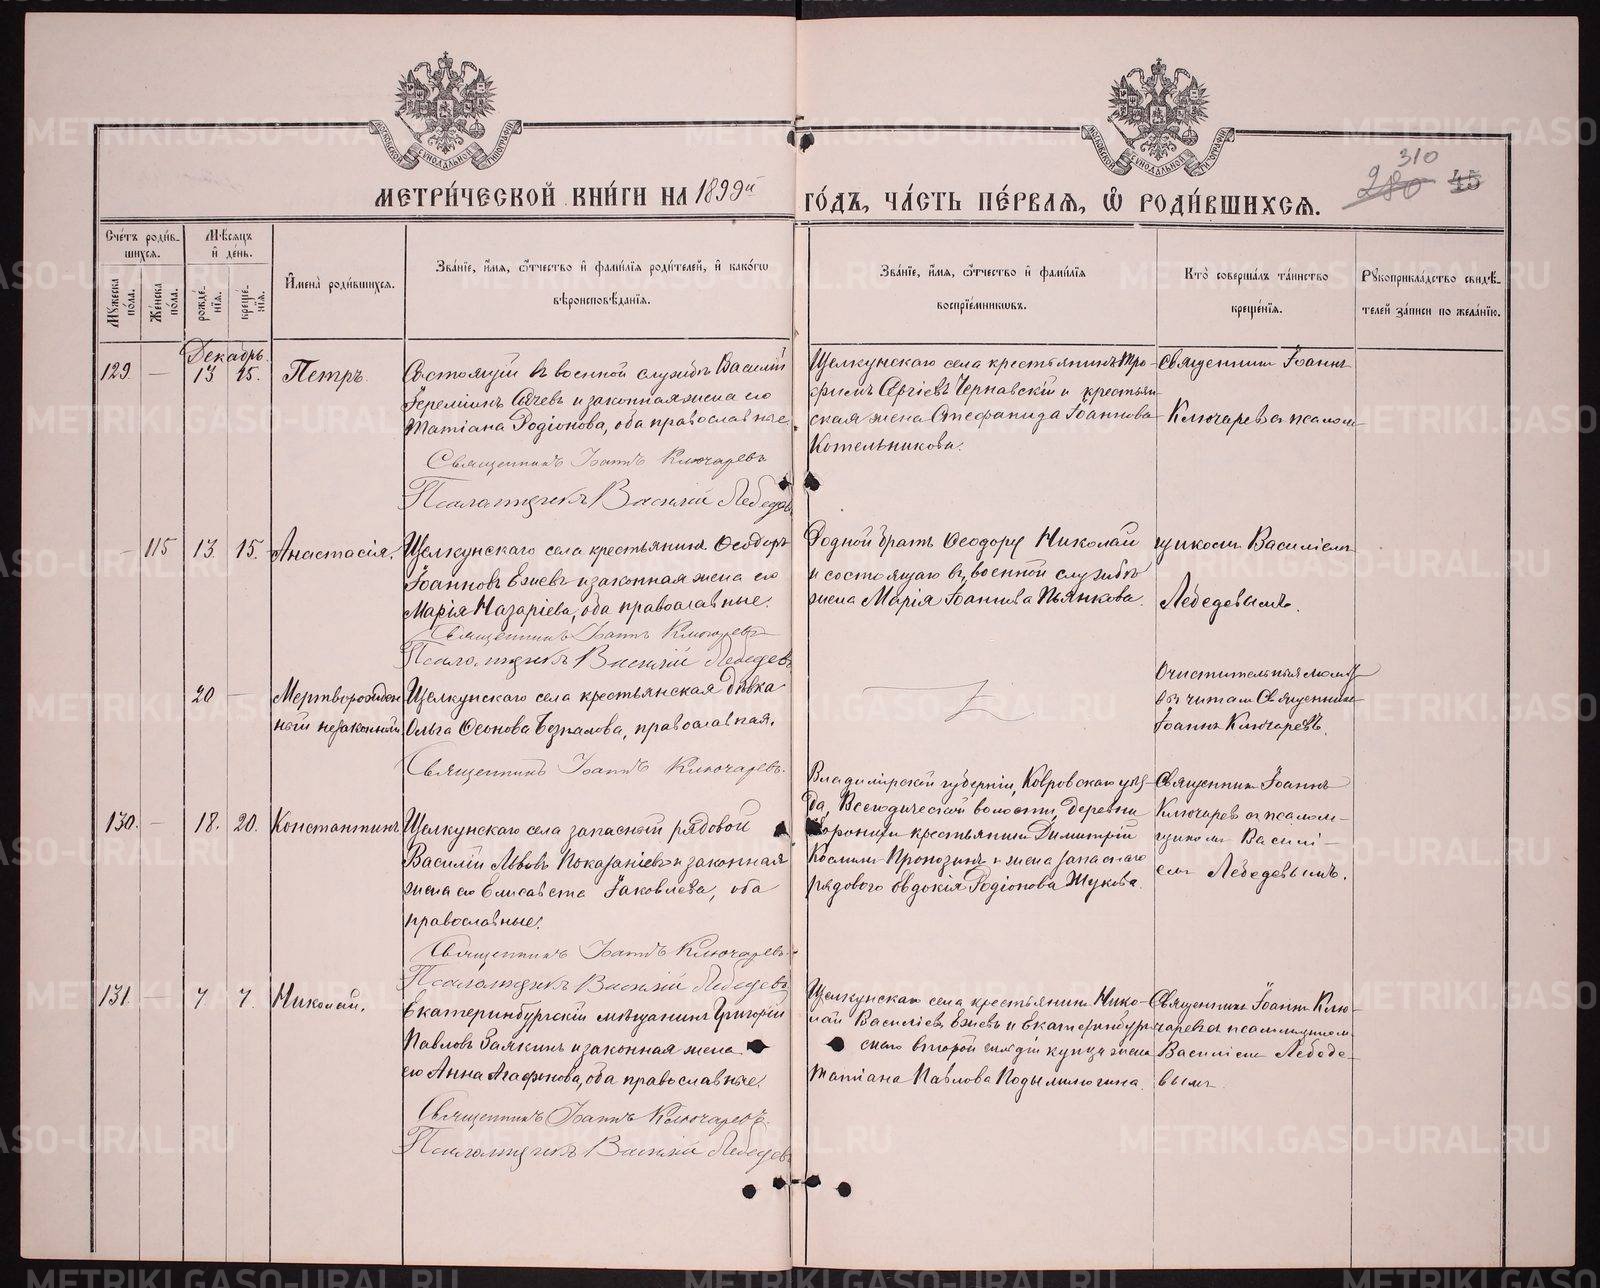 МЕТРИ́ЧЕСКОЙ КНИ́ГИ НА 1899й ГО́ДЪ, ЧА́СТЬ ПЕ́РВАѦ, Ѽ РОДИ́ВШИХСѦ.
310
280 45
Сче́тъ роди́в-
шихсѧ.
Мꙋ́жеска по́ла.
Же́нска по́ла.
Мѣ́сѧцъ
и҆ де́нь.
рожде́-
нїѧ.
креще́-
нїѧ.
И҆мена̀ роди́вшихсѧ.
Зва́нїе, и҆́мѧ, ѻ҆́тчество и҆ фами́лїѧ роди́телей, и҆ како́гѡ
вѣроисповѣ́данїѧ.
Зва́нїе, и҆́мѧ, ѻ҆́тчество и҆ фами́лїѧ
воспрїе́мникѡвъ.
Кто̀ соверша́лъ та́инство
креще́нїѧ.
Рꙋкоприкла́дство свидѣ́-
телей за́писи по жела́нїю.
Декабрь.
129 — 13 15. Петръ.
Состоящій въ военной службѣ Василій
Сычевъ и законная жена его
Татіана Родіонова, оба православные.
Священникъ Іоаннъ Ключаревъ
Псаломщикъ Василій Лебедевъ
Щелкунскаго села крестьянинъ Тро-
фимъ Сергіевъ Чернавскій и крестьян
ская жена Стефанида Іоаннова
Котельникова.
Священникъ Іоаннъ
Ключаревъ с псалом-
— 115 13 15. Анастасія.
Щелкунскаго села крестьянинъ Ѳеодоръ
Іоанновъ Ежевъ и законная жена его
Марія Назаріева, оба православные.
Священникъ Іоаннъ Ключаревъ
Псаломщикъ Василій Лебедевъ
Родной братъ Ѳеодору Николай
и состоящаго въ военной службѣ
жена Марія Іоаннова Пьянкова.
щикомъ Василіемъ
Лебедевымъ.
20 — Мертворожден
ный незаконный
Щелкунскаго села крестьянская дѣвка
Ольга Безпалова, православная.
Священникъ Іоаннъ Ключаревъ.
Очистительныя молит
вы читалъ Священникъ
Іоаннъ Ключаревъ.
130. — 18. 20. Константинъ
Щелкунскаго села запасный рядовой
Василій Львовъ и законная
жена его Елисавета Іаковлева, оба
православные.
Священникъ Іоаннъ Ключаревъ
Псаломщикъ Василій Лебедевъ
Владимірской губерніи, Ковровскаго уѣз-
да, Всегодической волости, деревни
крестьянинъ Димитрій
Косминъ и жена запаснаго
рядового Евдокія Родіонова Жукова.
Священникъ Іоаннъ
Ключаревъ с псалом-
щикомъ Василі-
емъ Лебедевымъ.
131. — 7 7. Николай.
Екатеринбургскій мѣщанинъ Григорій
Павловъ Заякинъ и законная жена
его Анна Агафонова, оба православные.
Священникъ Іоаннъ Ключаревъ
Псаломщикъ Василій Лебедевъ
Щелкунскаго села крестьянинъ Нико-
лай Василіевъ Ежевъ и Екатеринбург-
скаго второй гильдіи купца жена
Татіана Павлова
Священникъ Іоаннъ Клю-
чаревъ с псаломщикомъ
Василіемъ Лебеде-
вымъ.